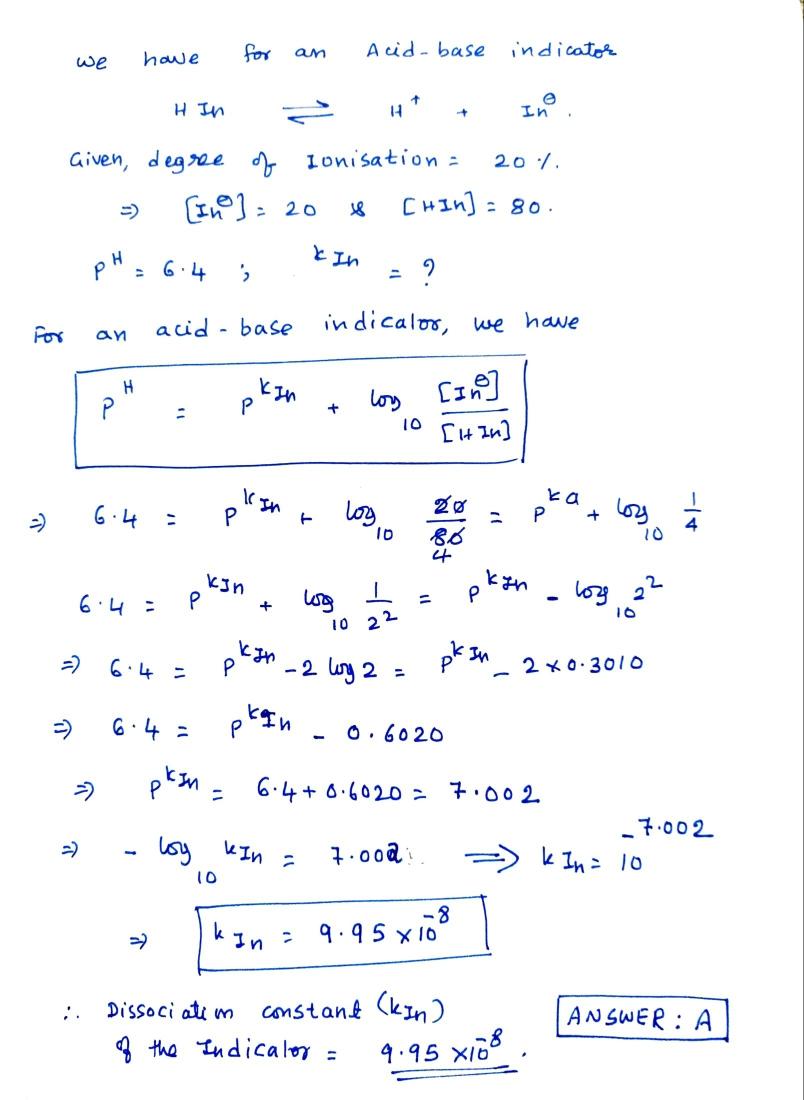 we have for an Acid-base indicator
H In ⇌ H⁺ + In⊖.
Given, degree of Ionisation = 20 %.
⇒ [In⊖] = 20 & [HIn] = 80.
pᴴ = 6.4 ; kIn = ?
For an acid-base indicator, we have
pᴴ = p^kIn + log₁₀ [In⊖]/[HIn]
⇒ 6.4 = p^kIn + log₁₀ 20/80 4 = p^ka + log₁₀ 1/4
6.4 = p^kIn + log₁₀ 1/2² = p^kIn - log₁₀ 2²
⇒ 6.4 = p^kIn - 2 log 2 = p^kIn - 2 × 0.3010
⇒ 6.4 = p^kIn - 0.6020
⇒ p^kIn = 6.4 + 0.6020 = 7.002
⇒ - log₁₀ kIn = 7.002 ⟹ kIn = 10^-7.002
⇒ kIn = 9.95 × 10⁻⁸
∴ Dissociation constant (kIn)
of the Indicator = 9.95 × 10⁻⁸.
ANSWER : A